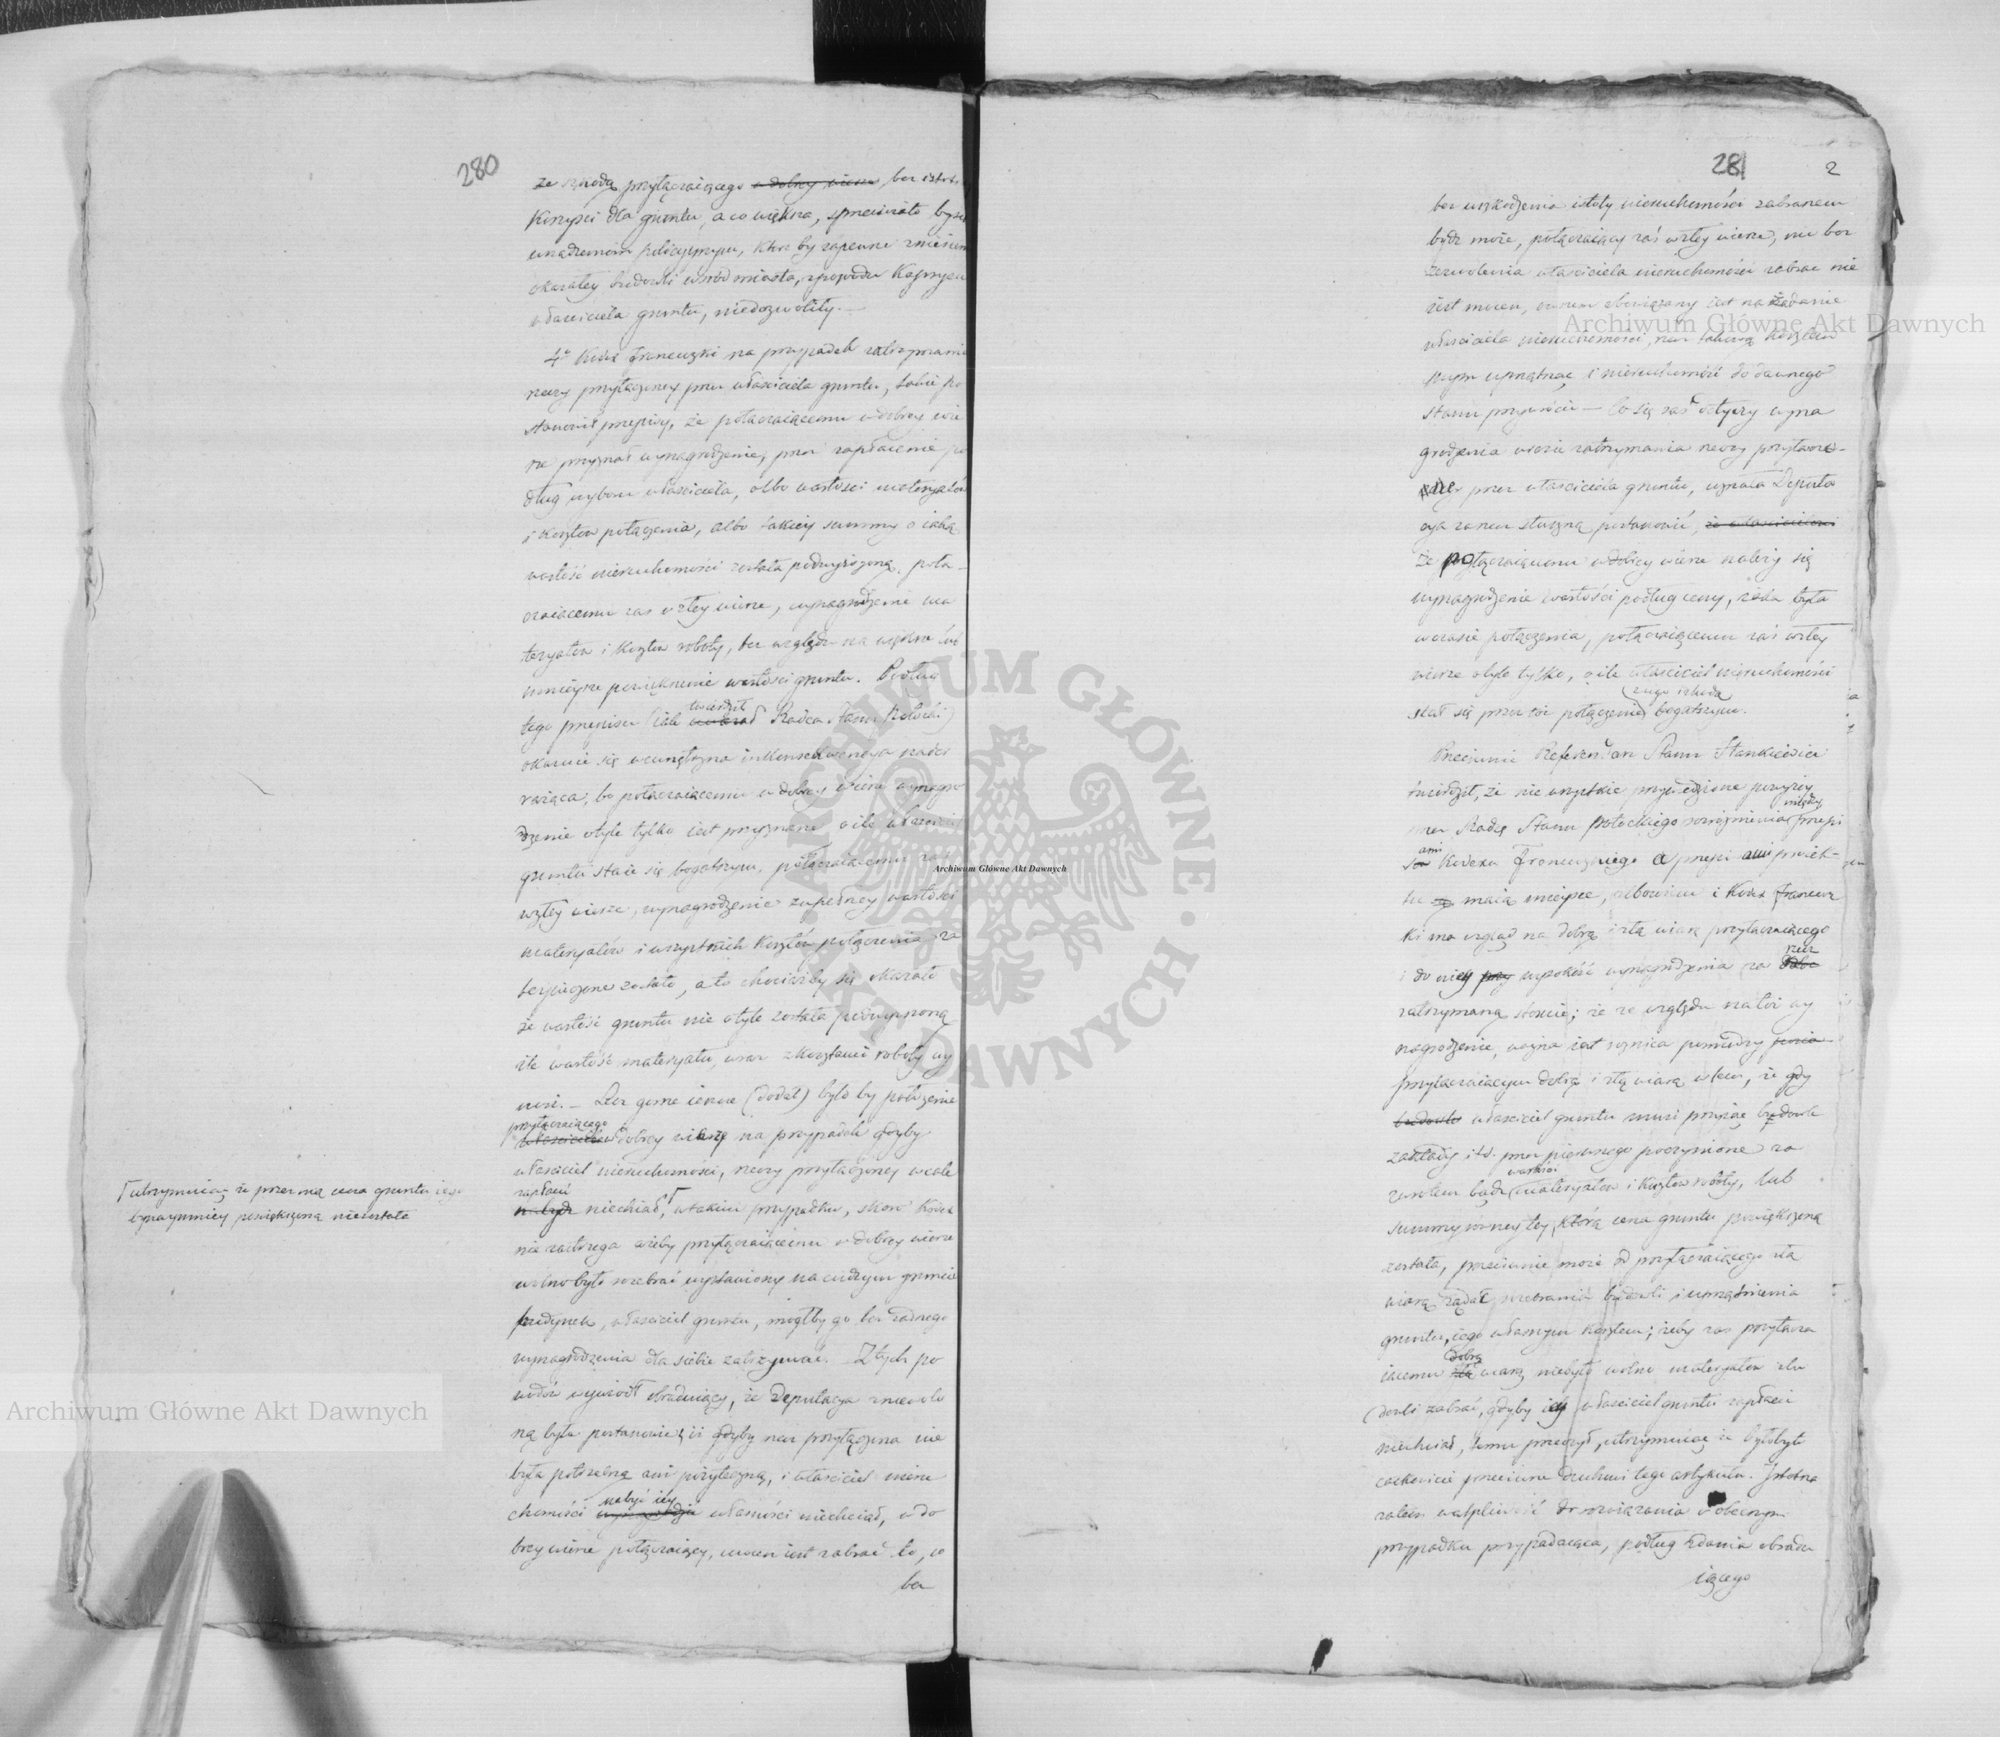 280
ze szkodą przyłączaiącego w dobrey wierze bez istot.
korzyści dla gruntu, a co większa, sprzeciwiało by się
urządzeniom policyjnym, które by zapewne zniesienia
okazałey budowli wśród miasta, z powodu kaprysu
właściciela gruntu, niedozwoliły. —
4° Kodex francuzki na przypadek zatrzymania
rzeczy przyłączoney przez właściciela gruntu, takie po
stanowił przepisy, że połączaiącemu w dobrey wie
rze przyznał wynagrodzenie, przez zapłacenie po
dług wyboru właściciela, albo wartości materyałów
i kosztów połączenia, albo takiey summy o iaką
wartość nieruchomości została podwyższoną, połą-
czaiącemu zaś w złey wierze, wynagrodzenie ma
teryałów i kosztów roboty, bez względu na większe lub
mnieysze powiększenie wartości gruntu. Podług
tego przepisu (iak twierdził Radca Stanu Potocki)
okazuie się wewnętrzna inkonsekwencya nader
rażąca, bo połączaiącemu w dobrey wierze wynagro
dzenie otyle tylko iest przyznane o ile właściciel
gruntu staie się bogatszym, połączaiącemu zaś
w złey wierze, wynagrodzenie zupełney wartości
materyałów i wszystkich kosztów połączenia za
bezpieczone zostało, a to chociażby się okazało
że wartość gruntu nie otyle została podwyższoną
ile wartość materyału, wraz z kosztami roboty wy
nosi. — Lecz gorsze ieszcze (dodał) było by położenie
przyłączaiącego
właściciela w dobrey wierze na przypadek gdyby
właściciel nieruchomości, rzeczy przyłączoney wcale
zapłacić
nabydź niechciał, Γ w takim przypadku, skoro Kodex
Γ utrzymuiąc że przez nią cena gruntu iego
bynaymniey powiększoną niezostała
nie zastrzega ażeby przyłączaiącemu w dobrey wierze
wolno było rozebrać wystawiony na cudzym gruncie
budynek, właściciel gruntu, mógłby go bez żadnego
wynagrodzenia dla siebie zatrzymać. Z tych po
wodów wywiódł obraduiący, że Deputacya zniewolo
ną była postanowić, iż gdyby rzecz przyłączona nie
była potrzebną ani pożyteczną, i właściciel nieru
chomości nabyć iey własności niechciał, w do
brey wierze połączaiący, mocen iest zabrać to, co
bez
281 2
bez uszkodzenia istoty nieruchomości zabranem
bydź może, połączaiący zaś w złey wierze, nic bez
zezwolenia właściciela nieruchomości zabrać nie
iest mocen, owszem obowiązany iest na żądanie
właściciela nieruchomości, rzecz takową kosztem
swym uprzątnąć, i nieruchomość do dawnego
stanu przywrócić — Co się zaś dotyczy wyna
grodzenia w razie zatrzymania rzeczy przyłączo-
ney przez właściciela gruntu, uznała Deputa
cya za rzecz słuszną postanowić, że właścicielowi
że połączaiącemu w dobrey wierze należy się
wynagrodzenie wartości podług ceny, iaka była
w czasie połączenia, połączaiącemu zaś w złey
wierze otyle tylko, o ile właściciel nieruchomości
z iego szkodą
stał się przez toż połączenie bogatszym.
Przeciwnie Referendarz Stanu Stankiewicz
twierdził, że nie wszystkie przywiedzione powyżey
przez Radcę Stanu Potockiego porównienia między przepi
sami Kodexu Francuzkiego a przepisami proiek-
tu maią mieysce, albowiem i Kodex francuz
ki ma wzgląd na dobrą i złą wiarę przyłączaiącego
i do niey wysokość wynagrodzenia za rzecz
zatrzymaną stosuie; że ze względu na toż wy
nagrodzenie, ważna iest różnica pomiędzy
przyłączaiącym dobrą i złą wiarą w tem, że gdy
budowle właściciel gruntu musi przyiąć budowle
zakłady i t.d. przez pierwszego poczynione za
zwrotem bądź wartości materyałów i kosztów roboty, lub
summy równey tey, którą cena gruntu powiększoną
została, przeciwnie może od przyłączaiącego złą
wiarą żądać zebrania budowli i uprzątnienia
gruntu, iego własnym kosztem; żeby zaś przyłącza
iacemu dobrą wiarą niebyło wolno materyałów z bu
dowli zabrać, gdyby iey właściciel gruntu zapłacić
niechciał, temu przeczył, utrzymuiąc że byłoby to
całkowicie przeciwne duchowi tego artykułu. Istotna
zatem wątpliwość do rozwiązania w obecnym
przypadku przypadaiąca, podług zdania obradu
iącego
Archiwum Główne Akt Dawnych
Archiwum Główne Akt Dawnych
Archiwum Główne Akt Dawnych
ARCHIWUM GŁÓWNE · AKT DAWNYCH ·